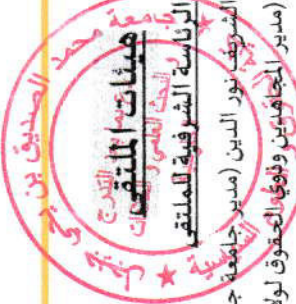 هيئات الملتقى
الرئاسة الشرفية للملتقى
الشريف نور الدين (مدير جامعة ج
(مدير المجاهدين وذوي الحقوق لولا
جامعة محمد الصديق بن يحي